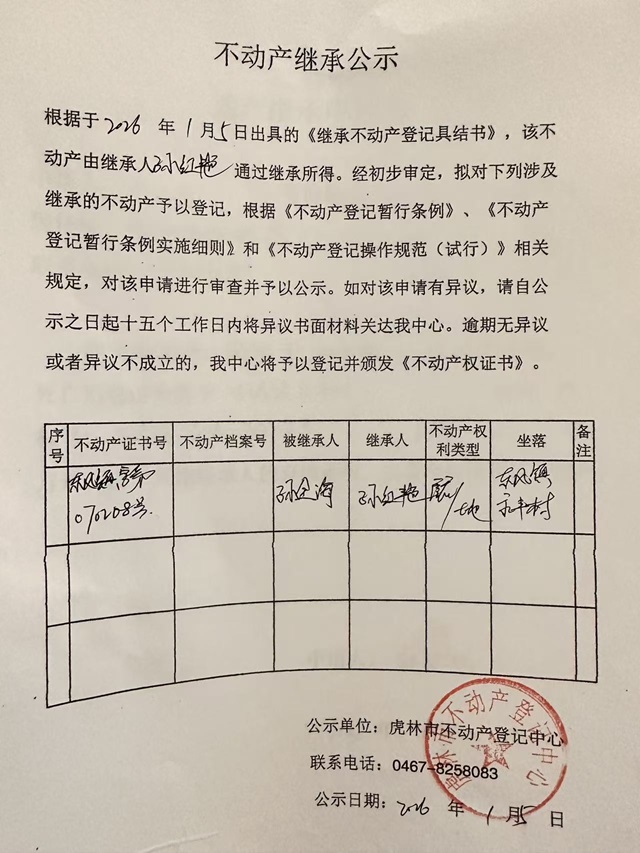 不动产继承公示
根据于2026 年 1月5日出具的《继承不动产登记具结书》，该不
动产由继承人孙红艳 通过继承所得。经初步审定，拟对下列涉及
继承的不动产予以登记，根据《不动产登记暂行条例》、《不动产
登记暂行条例实施细则》和《不动产登记操作规范（试行）》相关
规定，对该申请进行审查并予以公示。如对该申请有异议，请自公
示之日起十五个工作日内将异议书面材料关达我中心。逾期无异议
或者异议不成立的，我中心将予以登记并颁发《不动产权证书》。
序号 不动产证书号 不动产档案号 被继承人 继承人 不动产权利类型 坐落 备注
东风镇 字第 孙 海 孙红艳 /地 东风镇
070208号. 永丰村
公示单位：虎林市不动产登记中心
联系电话：0467-8258083
公示日期：2026 年 1月5 日
虎林市不动产登记中心